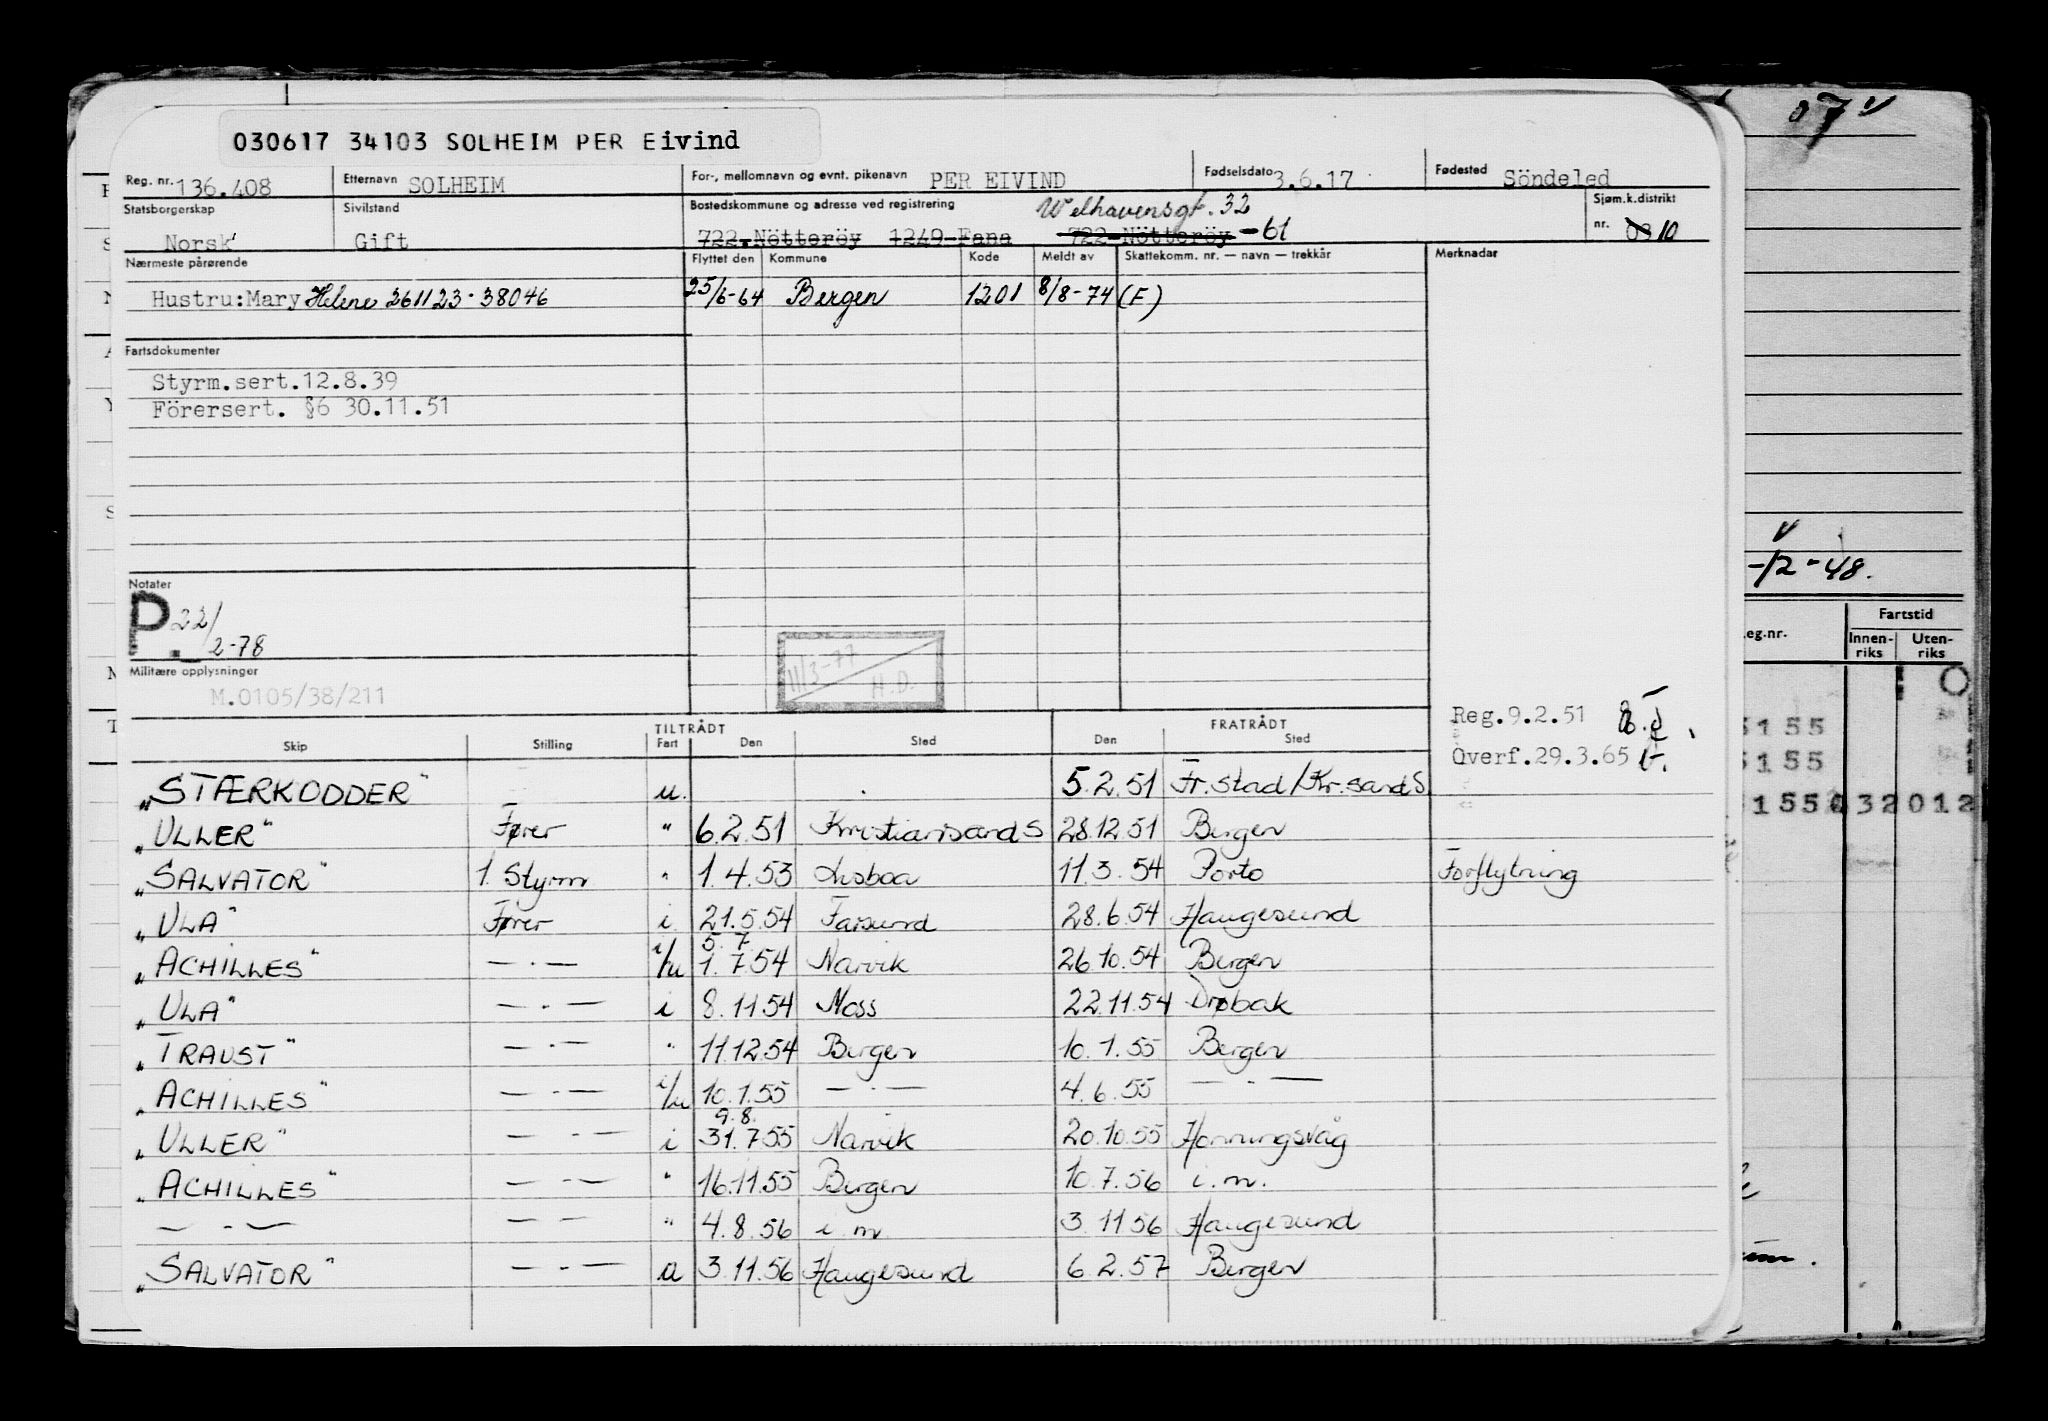 030617 34103 SOLHEIM PER Eivind
Reg. nr. 136.408 Etternavn SOLHEIM For-, mellomnavn og evnt. pikenavn PER EIVIND Fødselsdato 3.6.17 Fødested Söndeled
Statsborgerskap Norsk Sivilstand Gift Bostedskommune og adresse ved registrering Welhavensgt. 32 Sjøm.k.distrikt
722 Nötteröy 1249 Fana 722 Nötteröy -61 nr. 03 10
Nærmeste pårørende Flyttet den Kommune Kode Meldt av Skattekomm. nr. — navn — trekkår Merknadar
Hustru:Mary Helene 261123-38046 25/6-64 Bergen 1201 8/8-74 (F)
Fartsdokumenter
Styrm.sert.12.8.39
Förersert. §6 30.11.51
Notater
P. 22/2-78
11/3-77 H.D.
Militære opplysninger
M.0105/38/211
Reg.9.2.51
Overf.29.3.65
TILTRÅDT FRATRÅDT
Skip Stilling Fart Den Sted Den Sted
"STÆRKODDER" u. 5.2.51 Fr.stad/Kr.sand S
"ULLER" Fører " 6.2.51 Kristiansand S 28.12.51 Bergen
"SALVATOR" 1. Styrm " 1.4.53 Lisboa 11.3.54 Porto Forflytning
"ULA" Fører i 21.5.54 Farsund 28.6.54 Haugesund
5.7.
"ACHILLES" — . — i/u 1.7.54 Narvik 26.10.54 Bergen
"ULA" — . — i 8.11.54 Moss 22.11.54 Drøbak
"TRAUST" — . — " 11.12.54 Bergen 10.1.55 Bergen
"ACHILLES" — . — i/u 10.1.55 — . — 4.6.55 — . —
9.8.
"ULLER" — . — i 31.7.55 Narvik 20.10.55 Honningsvåg
"ACHILLES" — . — " 16.11.55 Bergen 10.7.56 i.m.
— . — — . — " 4.8.56 i.m 3.11.56 Haugesund
"SALVATOR" — . — u 3.11.56 Haugesund 6.2.57 Bergen
07 v
v
-12-48.
eg.nr. Fartstid
Innen-riks Uten-riks
5155
5155
032012